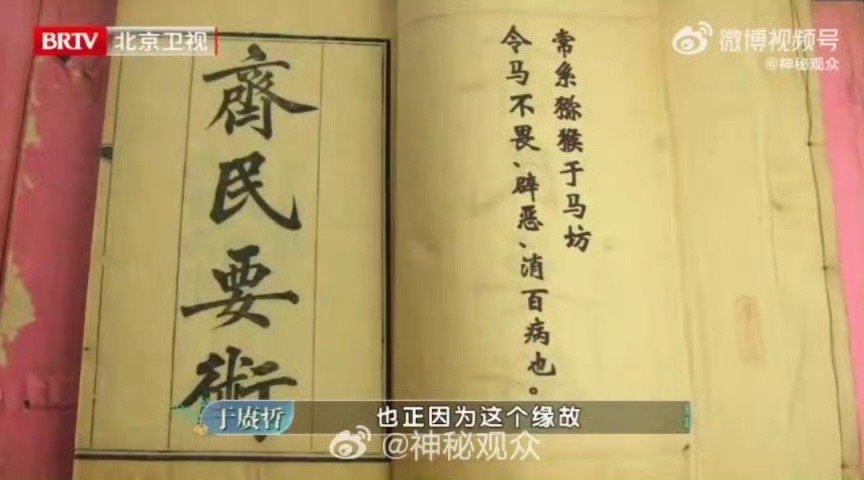 BRTV 北京卫视
微博视频号
@神秘观众
齊民要術
常系猕猴于马坊
令马不畏、辟恶、消百病也。
于赓哲
也正因为这个缘故
@神秘观众